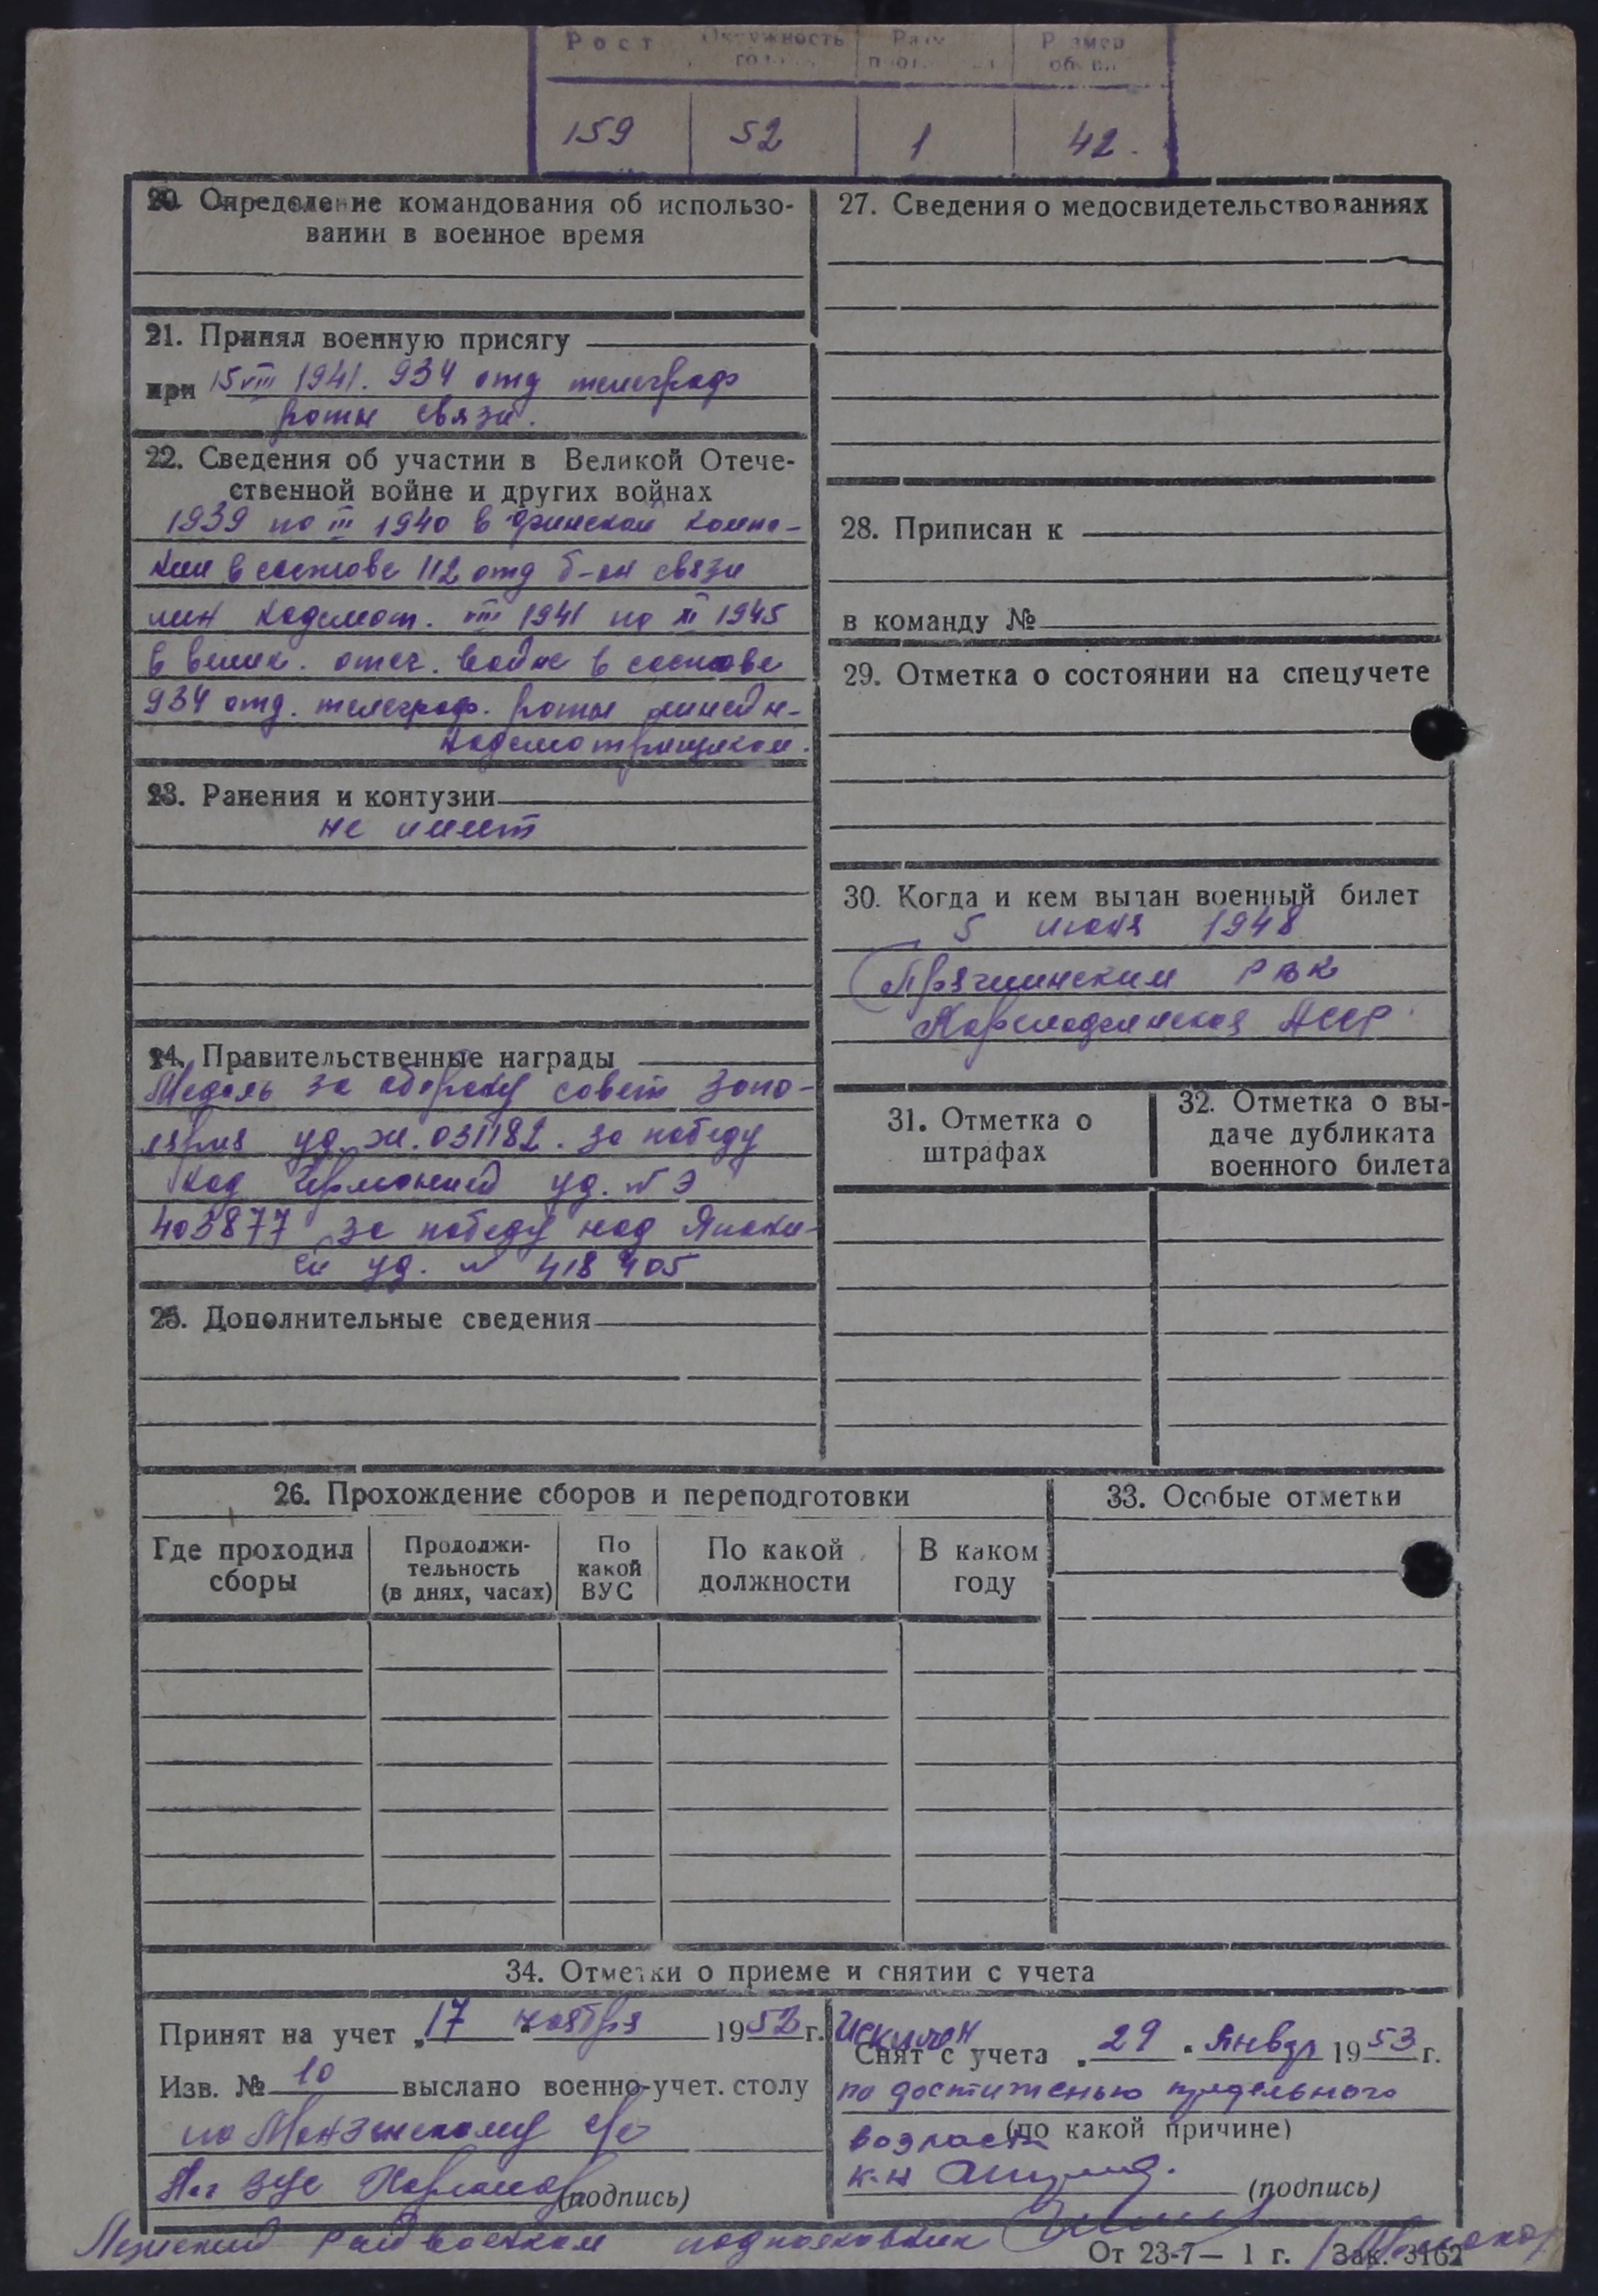 Рост Окружность Размер
159 52 1 42.
20. Определение командования об использо-
вании в военное время
21. Принял военную присягу
при 15 VIII 1941. 934 отд телеграф
роты связи.
22. Сведения об участии в Великой Отече-
ственной войне и других войнах
1939 по III 1940 в финской компа-
нии в составе 112 отд б-он связи
лин надсмот. VIII 1941 по XI 1945
в велик. отеч. войне в составе
934 отд. телеграф. роты линейн-
надсмотрщиком.
23. Ранения и контузии
не имеет
24. Правительственные награды
Медаль за оборону совет запо-
лярия уд. м. 031182. за победу
над Германией уд. № Э
403877 за победу над Япони-
ей уд. № 418405
25. Дополнительные сведения
27. Сведения о медосвидетельствованиях
28. Приписан к
в команду №
29. Отметка о состоянии на спецучете
30. Когда и кем выдан военный билет
5 июня 1948
Пряжинским РВК
АССР
31. Отметка о
штрафах
32. Отметка о вы-
даче дубликата
военного билета
26. Прохождение сборов и переподготовки
Где проходил
сборы
Продолжи-
тельность
(в днях, часах)
По
какой
ВУС
По какой
должности
В каком
году
33. Особые отметки
34. Отметки о приеме и снятии с учета
Принят на учет „17 " ноября 1952 г.
Изв. № 10 выслано военно-учет. столу
по
(подпись)
Исключен
Снят с учета „29 " январ 1953 г.
по достиженью предельного
(по какой причине)
возраста
к-н
(подпись)
Райвоенком подполковник
От 23-7— 1 г. Зак. 3162